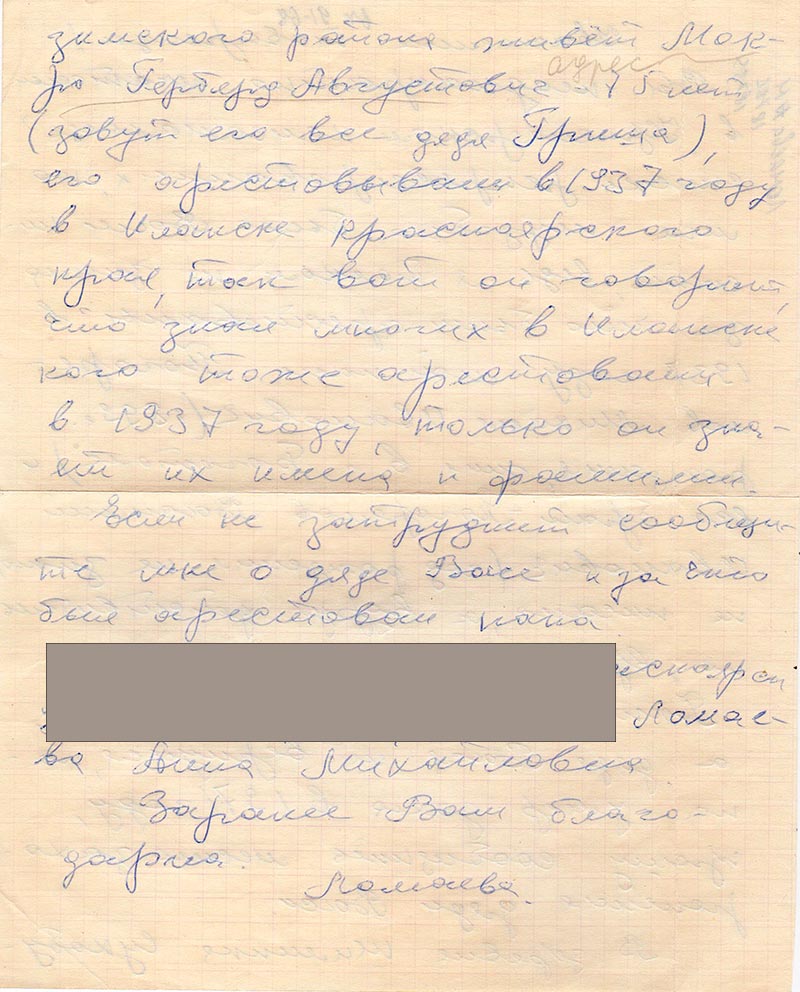 зимского района живёт Мок-
ро Герберд Августович 75 лет
адрес
(зовут его все дядя Гриша),
его арестовывали в 1937 году
в Иланске Красноярского
края, так вот он говорит,
что знал многих в Иланске
кого тоже арестовали
в 1937 году, только он зна-
ет их имена и фамилии.
Если не затруднит сообщи-
те мне о дяде Васе и за что
был арестован папа
Ломае-
ва Анна Михайловна
Заранее Вам благо-
дарна.
Ломаева.